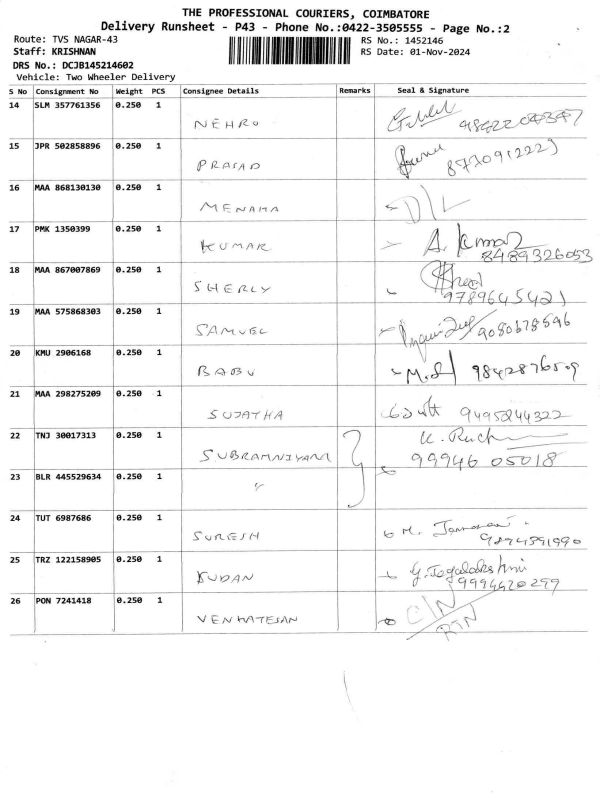 THE PROFESSIONAL COURIERS, COIMBATORE
Delivery Runsheet - P43 - Phone No.:0422-3505555 - Page No.:2
Route: TVS NAGAR-43
RS No.: 1452146
Staff: KRISHNAN
RS Date: 01-Nov-2024
DRS No.: DCJB145214602
Vehicle: Two Wheeler Delivery
S No Consignment No Weight PCS Consignee Details Remarks Seal & Signature
14 SLM 357761356 0.250 1 NEHRU
15 JPR 502858896 0.250 1 PRASAD
16 MAA 868130130 0.250 1 MENAHA D/L
17 PMK 1350399 0.250 1 KUMAR A. Kumar 8489326053
18 MAA 867007869 0.250 1 SHERLY 9789645421
19 MAA 575868303 0.250 1 SAMUEL 9080678596
20 KMU 2906168 0.250 1 BABU
21 MAA 298275209 0.250 1 SUJATHA 9495244322
22 TNJ 30017313 0.250 1 SUBRAMNIYAM 99946 05018
23 BLR 445529634 0.250 1 "
24 TUT 6987686 0.250 1 SURESH 9874891990
25 TRZ 122158905 0.250 1 KUDAN 9994420299
26 PON 7241418 0.250 1 VENKATESAN RTN